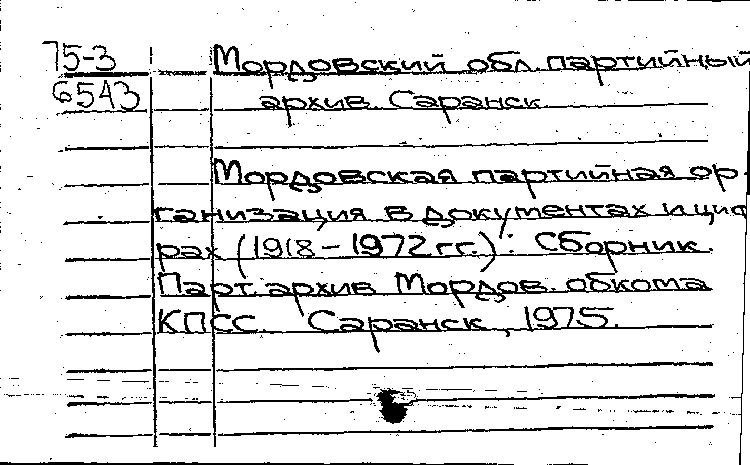 75-3 Мордовский обл. партийный
6543 архив. Саранск.
Мордовская партийная ор-
ганизация в документах и циф
рах (1918-1972 гг.): Сборник.
Парт. архив Мордов. обкома
КПСС. Саранск, 1975.